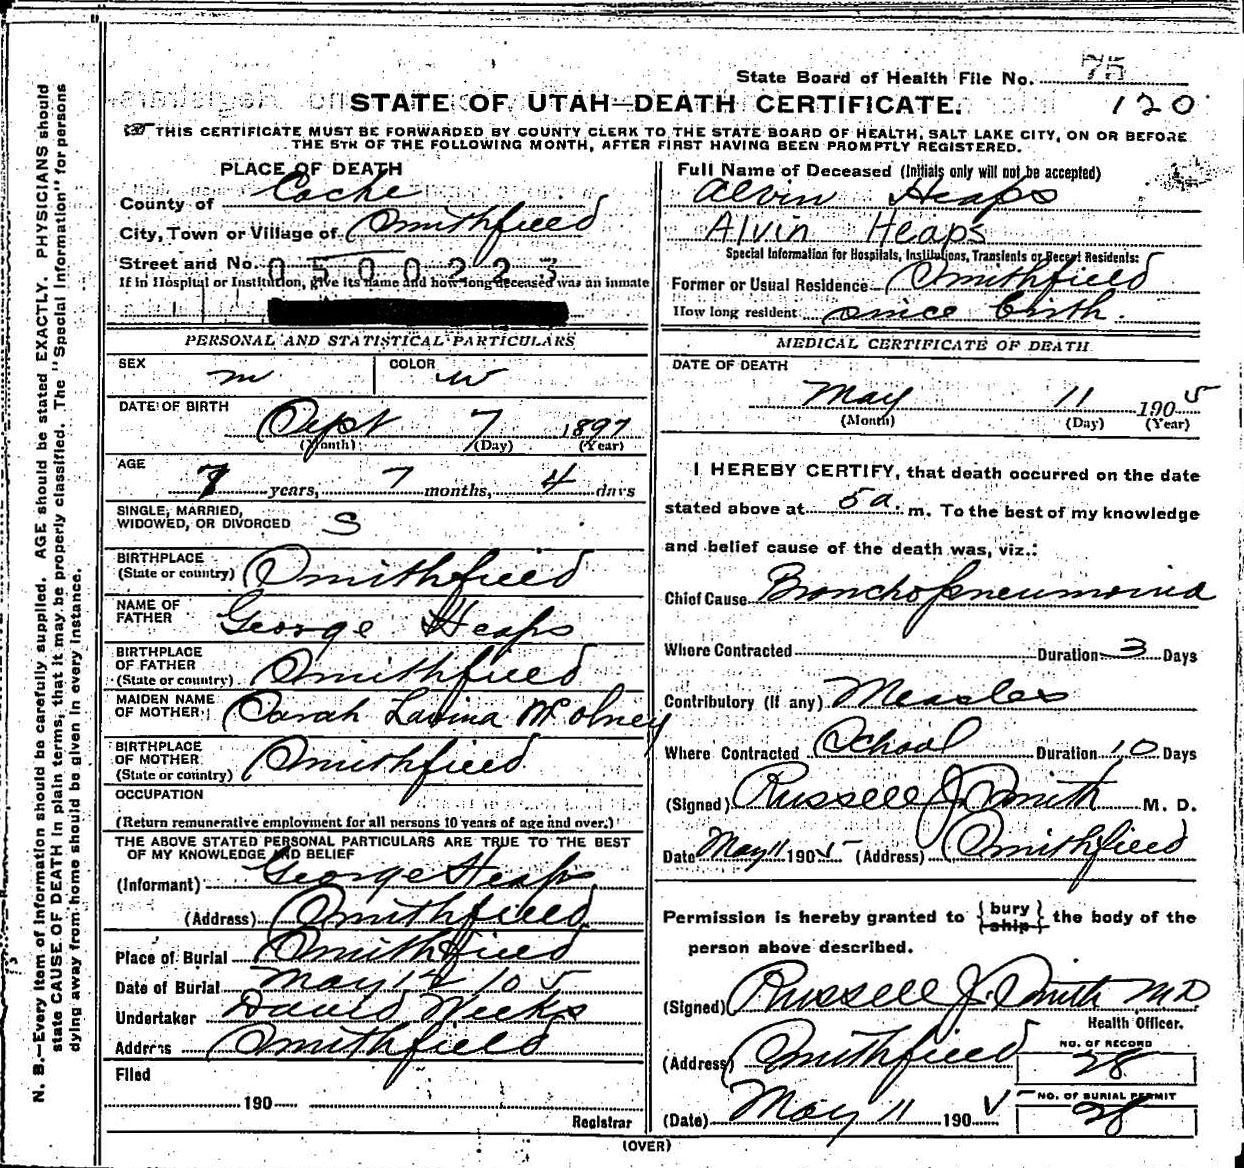 State Board of Health File No. 75
STATE OF UTAH—DEATH CERTIFICATE.
120
THIS CERTIFICATE MUST BE FORWARDED BY COUNTY CLERK TO THE STATE BOARD OF HEALTH, SALT LAKE CITY, ON OR BEFORE
THE 5TH OF THE FOLLOWING MONTH, AFTER FIRST HAVING BEEN PROMPTLY REGISTERED.
PLACE OF DEATH
County of Cache
City, Town or Village of Smithfield
Street and No. 0500223
If in Hospital or Institution, give its name and how long deceased was an inmate
PERSONAL AND STATISTICAL PARTICULARS
SEX m COLOR w
DATE OF BIRTH
Sept 7 1897
(Month) (Day) (Year)
AGE
7 years, 7 months, 4 days
SINGLE, MARRIED,
WIDOWED, OR DIVORCED S
BIRTHPLACE
(State or country) Smithfield
NAME OF
FATHER George Heaps
BIRTHPLACE
OF FATHER
(State or country) Smithfield
MAIDEN NAME
OF MOTHER Sarah Lavina
BIRTHPLACE
OF MOTHER
(State or country) Smithfield
OCCUPATION
(Return remunerative employment for all persons 10 years of age and over.)
THE ABOVE STATED PERSONAL PARTICULARS ARE TRUE TO THE BEST
OF MY KNOWLEDGE AND BELIEF
(Informant) George Heaps
(Address) Smithfield
Place of Burial Smithfield
Date of Burial May 05
Undertaker David Weeks
Address Smithfield
Filed
190
Registrar
Full Name of Deceased (Initials only will not be accepted)
Alvin Heaps
Alvin Heaps
Special Information for Hospitals, Institutions, Transients or Recent Residents:
Former or Usual Residence Smithfield
How long resident since birth.
MEDICAL CERTIFICATE OF DEATH
DATE OF DEATH
May 11 1905
(Month) (Day) (Year)
I HEREBY CERTIFY, that death occurred on the date
stated above at 5 a. m. To the best of my knowledge
and belief cause of the death was, viz.:
Chief Cause Bronchopneumonia
Where Contracted Duration 3 Days
Contributory (if any) Measles
Where Contracted School Duration 10 Days
(Signed) Russell J. Smith M. D.
Date May 11 1905 (Address) Smithfield
Permission is hereby granted to {bury ship} the body of the
person above described.
(Signed) Russell J. Smith MD
Health Officer.
(Address) Smithfield
NO. OF RECORD
28
(Date) May 11 1905
NO. OF BURIAL PERMIT
28
(OVER)
N. B.—Every item of information should be carefully supplied. AGE should be stated EXACTLY. PHYSICIANS should
state CAUSE OF DEATH in plain terms, that it may be properly classified. The "Special Information" for persons
dying away from home should be given in every instance.